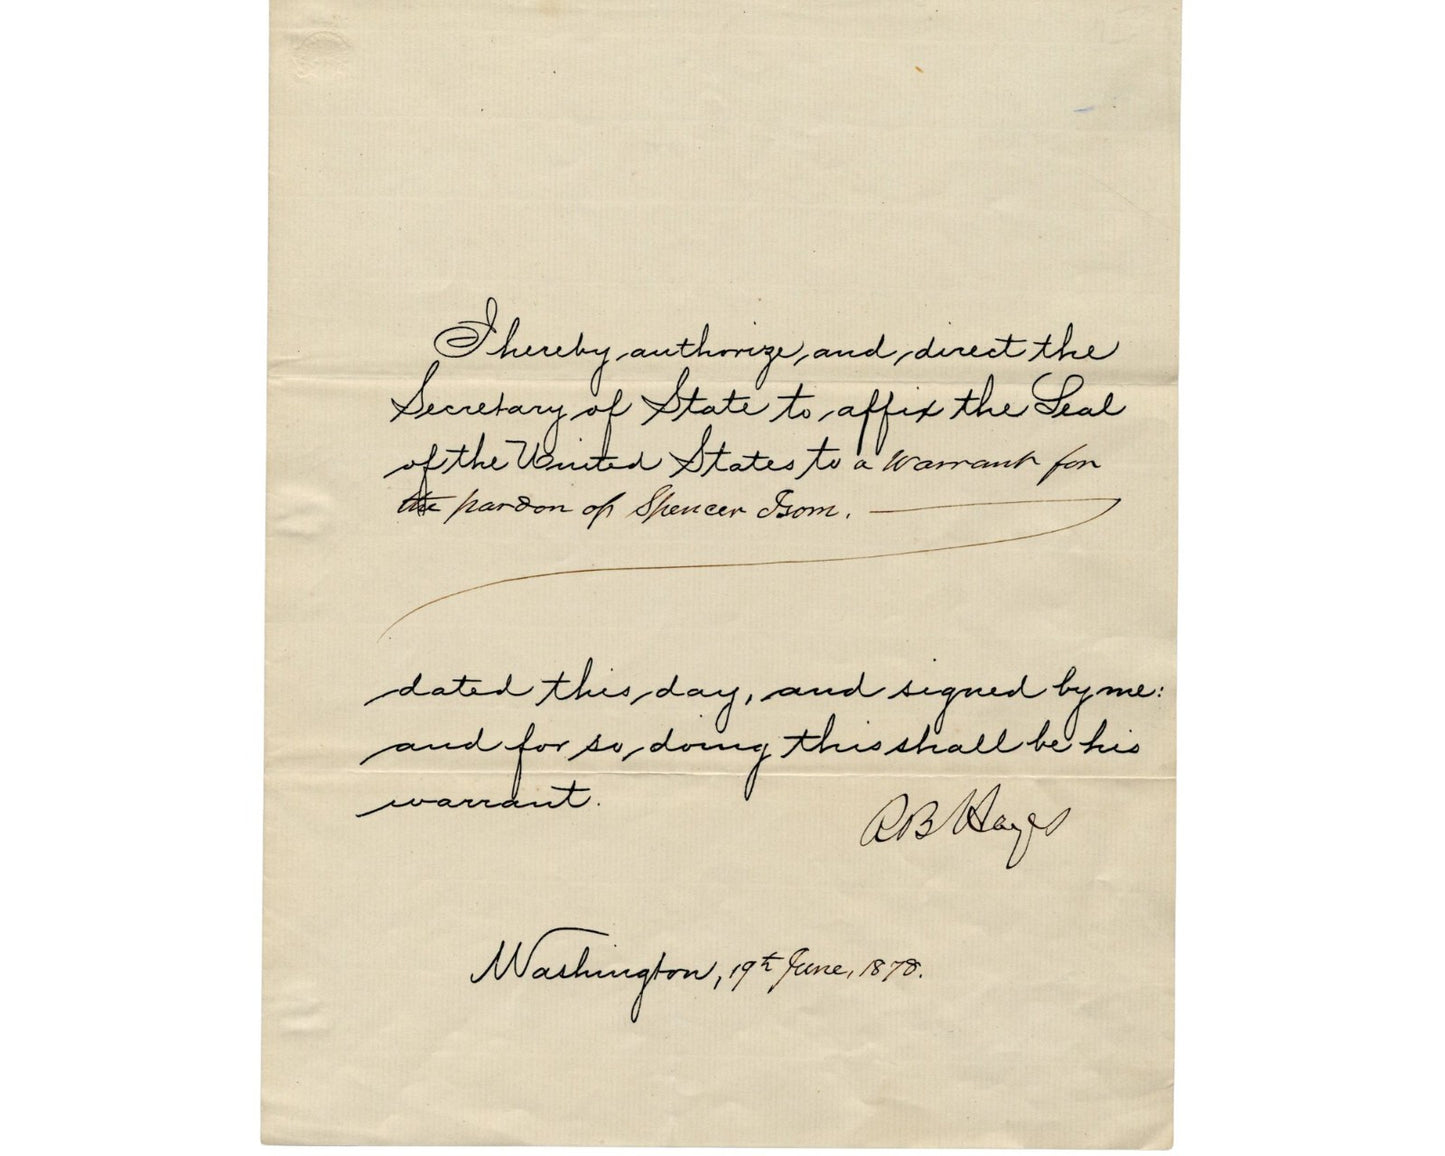 I hereby authorize, and direct the
Secretary of State to affix the Seal
of the United States to a Warrant for
the pardon of Spencer Isom.
dated this day, and signed by me:
and for so doing this shall be his
warrant.
R B Hayes
Washington, 19th June, 1878.